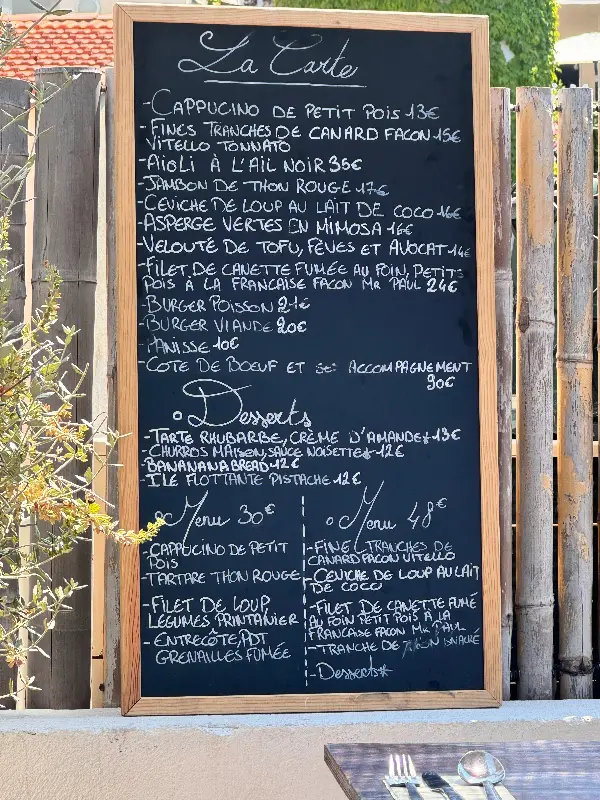 La Carte
-CAPPUCINO DE PETIT POIS 13€
-FINES TRANCHES DE CANARD FACON 15€
VITELLO TONNATO
-AIOLI À L'AIL NOIR 35€
-JAMBON DE THON ROUGE 17€
-CEVICHE DE LOUP AU LAIT DE COCO 16€
-ASPERGE VERTES EN MIMOSA 16€
-VELOUTÉ DE TOFU, FÈVES ET AVOCAT 14€
-FILET DE CANETTE FUMÉE AU FOIN, PETITS
POIS À LA FRANCAISE FACON MR PAUL 24€
-BURGER POISSON 21€
-BURGER VIANDE 20€
-PANISSE 10€
-COTE DE BOEUF ET SES ACCOMPAGNEMENT
90€
Desserts
-TARTE RHUBARBE, CRÈME D'AMANDE* 13€
-CHURROS MAISON, SAUCE NOISETTE* 12€
-BANANANABREAD 12€
-ILE FLOTTANTE PISTACHE 12€
Menu 30€
-CAPPUCINO DE PETIT
POIS
-TARTARE THON ROUGE
-FILET DE LOUP
LEGUMES PRINTANIER
-ENTRECÔTE, PDT
GRENAILLES FUMÉE
Menu 48€
-FINE TRANCHES DE
CANARD FACON VITELLO
-CEVICHE DE LOUP AU LAIT
DE COCO
-FILET DE CANETTE FUMÉ
AU FOIN PETIT POIS À LA
FRANCAISE FACON MR PAUL
-TRANCHE DE THON
-Desserts*